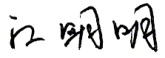 江明明